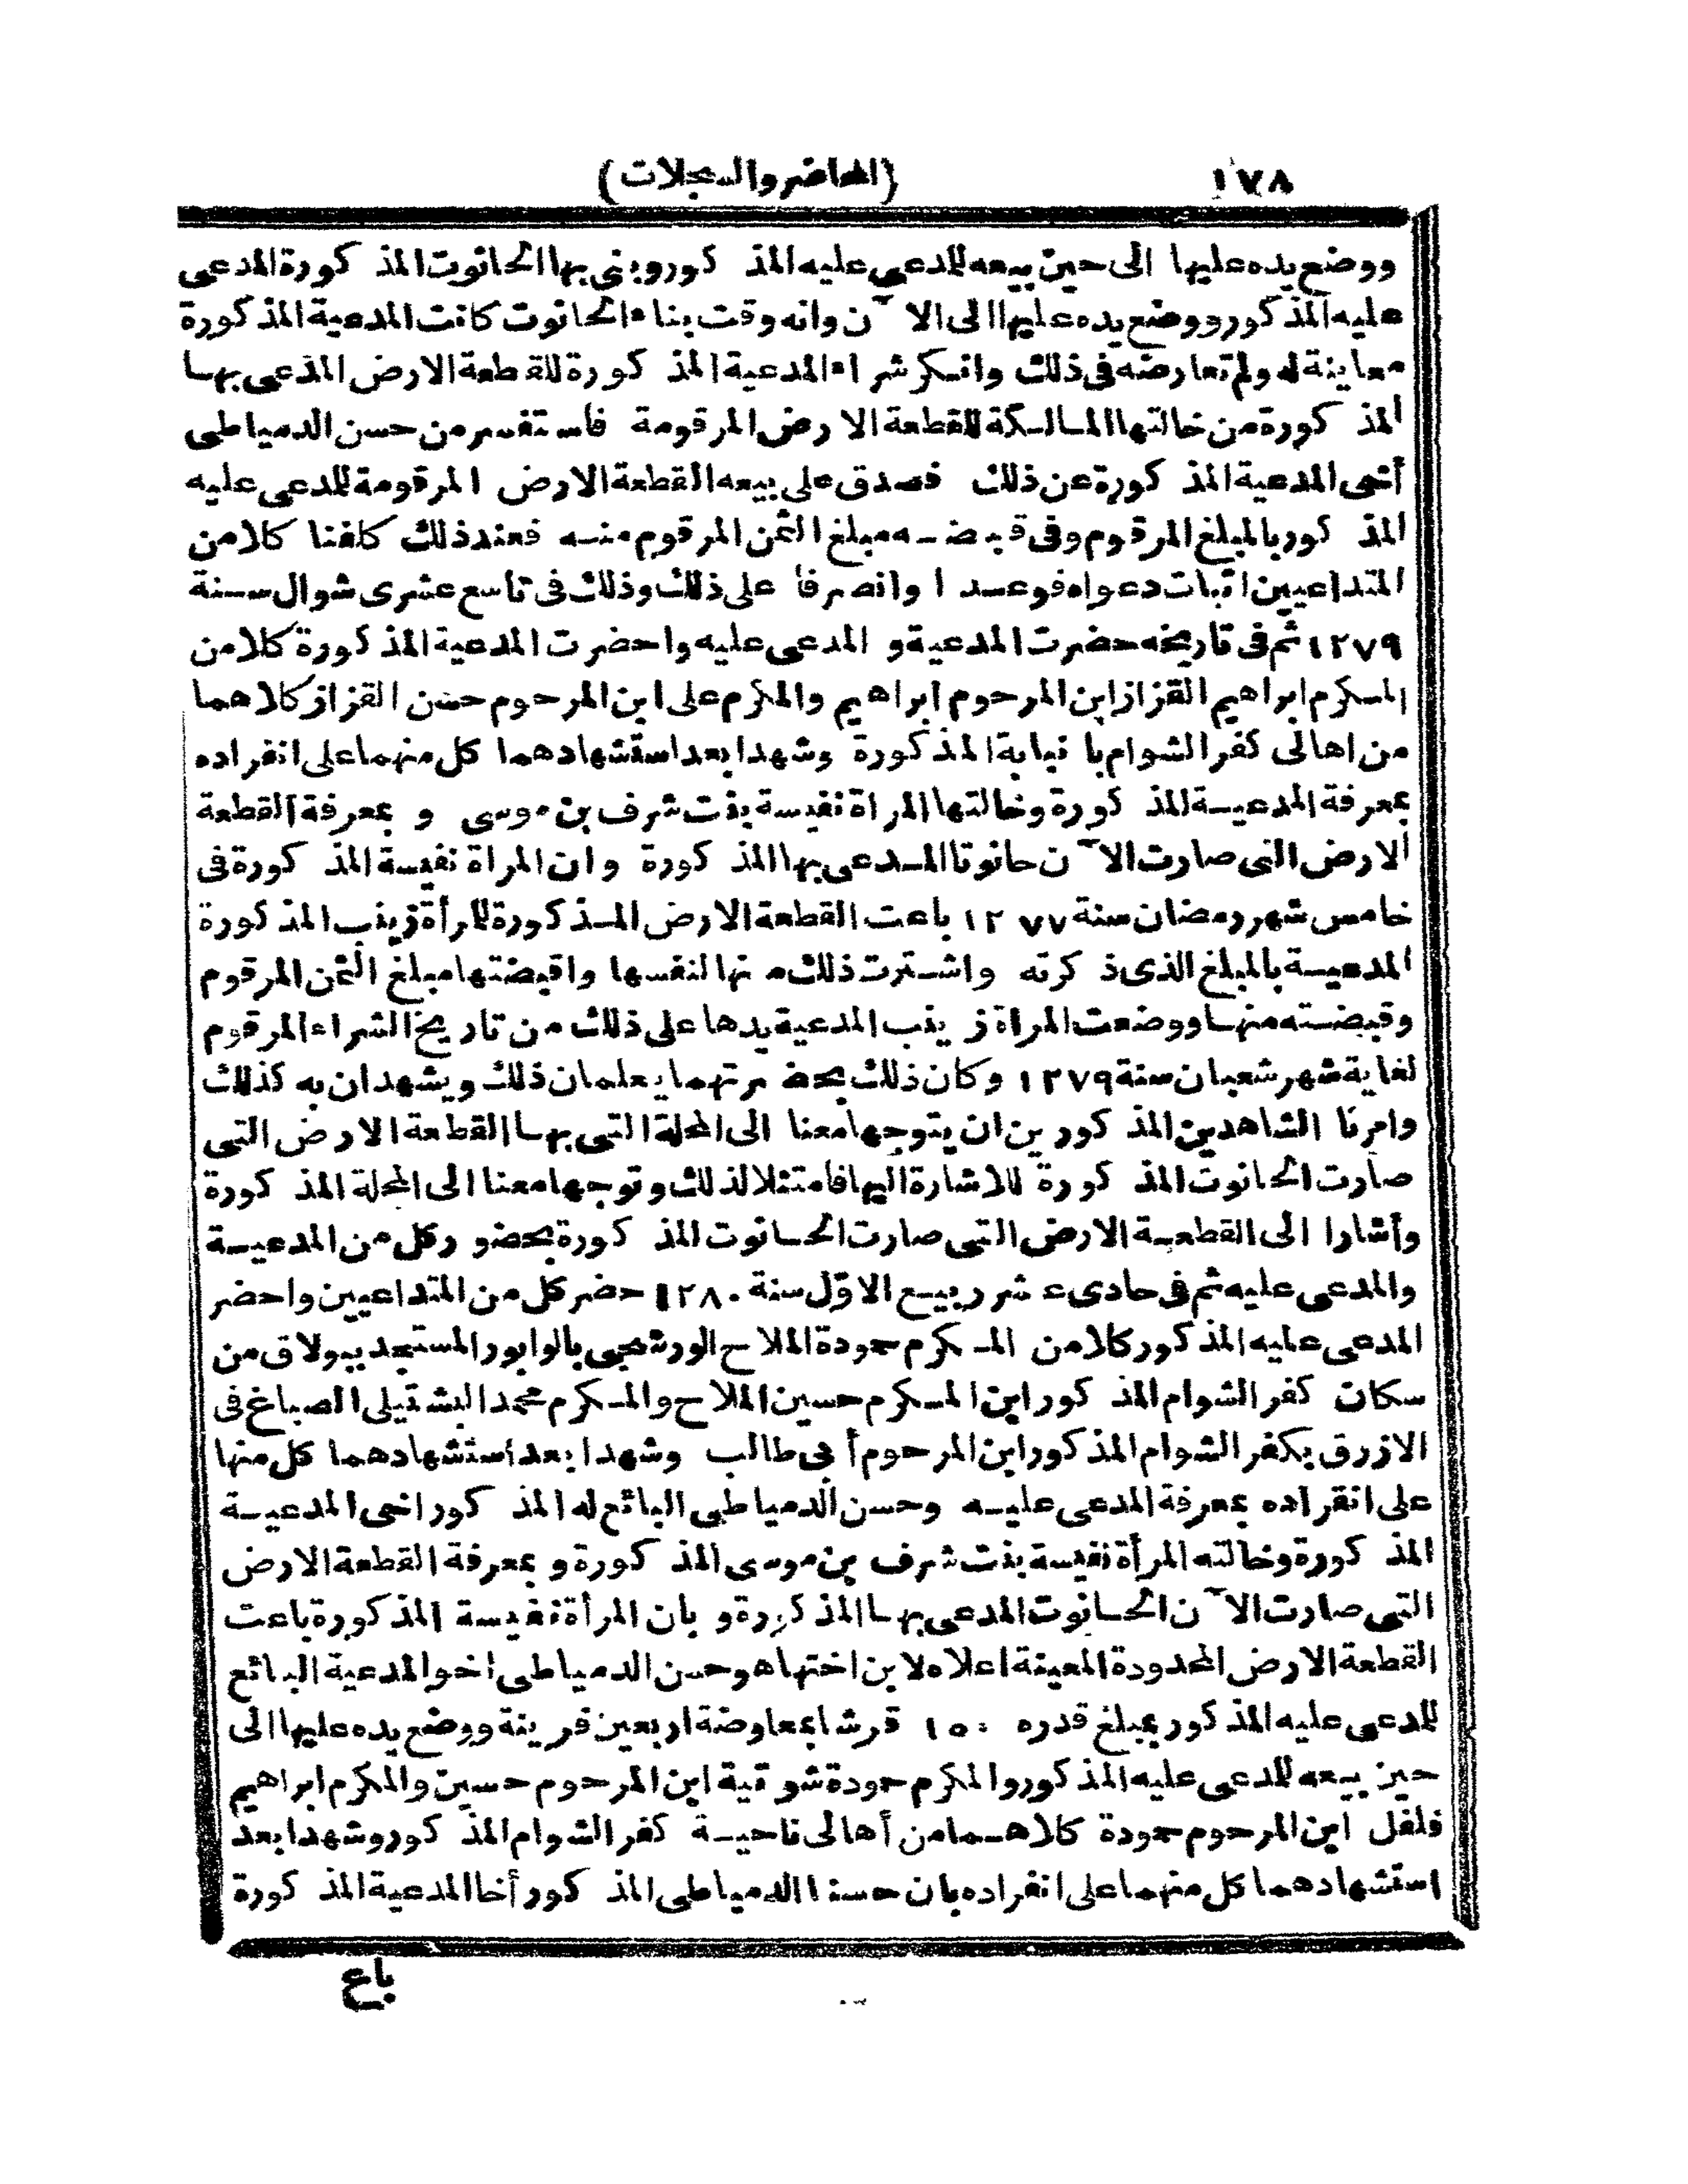 ١٧٨ (المحاضر والسجلات)
ووضع يده عليها الى حين بيعه للمدعى عليه المذكور وبنى بها الحانوت المذكورة المدعى
عليه المذكور ووضع يده عليها الى الآن وانه وقت بناء الحانوت كانت المدعية المذكورة
معاينة له ولم تعارضه فى ذلك وانكر شراء المدعية المذكورة للقطعة الارض المدعى بها
المذكورة من خالتها المالكة للقطعة الارض المرقومة فاستفسر من حسن الدمياطى
أخى المدعية المذكورة عن ذلك فصدق على بيعه القطعة الارض المرقومة للمدعى عليه
المذكور بالمبلغ المرقوم وفى قبضه مبلغ الثمن المرقوم منه فعند ذلك كلفنا كلا من
المتداعيين اثبات دعواه فوعدا وانصرفا على ذلك وذلك فى تاسع عشرى شوال سنة
١٢٧٩ ثم فى تاريخه حضرت المدعية و المدعى عليه واحضرت المدعية المذكورة كلا من
المكرم ابراهيم القزاز ابن المرحوم ابراهيم والمكرم على ابن المرحوم حسن القزاز كلاهما
من اهالى كفر الشوام با نبابة المذكورة وشهدا بعد استشهادهما كل منهما على انفراده
بمعرفة المدعية المذكورة وخالتها المراة نفيسة بنت شرف بن موسى و بمعرفة القطعة
الارض التى صارت الآن حانوتا المدعى بها المذكورة وان المراة نفيسة المذكورة فى
خامس شهر رمضان سنة ١٢٧٧ باعت القطعة الارض المذكورة للمرأة زينب المذكورة
المدعية بالمبلغ الذى ذكرته واشترت ذلك منها لنفسها واقبضتها مبلغ الثمن المرقوم
وقبضته منها ووضعت المراة زينب المدعية يدها على ذلك من تاريخ الشراء المرقوم
لغاية شهر شعبان سنة ١٢٧٩ وكان ذلك بحضرتهما يعلمان ذلك ويشهدان به كذلك
وامرنا الشاهدين المذكورين ان يتوجها معنا الى المحلة التى بها القطعة الارض التى
صارت الحانوت المذكورة للاشارة اليها فامتثلا لذلك وتوجها معنا الى المحلة المذكورة
وأشارا الى القطعة الارض التى صارت الحانوت المذكورة بحضور كل من المدعية
والمدعى عليه ثم فى حادى عشر ربيع الاوّل سنة ١٢٨٠ حضر كل من المتداعيين واحضر
المدعى عليه المذكور كلا من المكرم حمودة الملاح الورشجى بالوابور المستجد ببولاق من
سكان كفر الشوام المذكور ابن المكرم حسين الملاح والمكرم محمد البشتيلى الصباغ فى
الازرق بكفر الشوام المذكور ابن المرحوم أبى طالب وشهدا بعد استشهادهما كل منها
على انفراده بمعرفة المدعى عليه وحسن الدمياطى البائع له المذكور اخى المدعية
المذكورة وخالته المرأة نفيسة بنت شرف بن موسى المذكورة و بمعرفة القطعة الارض
التى صارت الآن الحانوت المدعى بها المذكورة و بان المرأة نفيسة المذكورة باعت
القطعة الارض المحدودة المعينة اعلاه لابن اختها هو حسن الدمياطى اخو المدعية البائع
للمدعى عليه المذكور بمبلغ قدره ١٥٠ قرشا بمعاوضة اربعين قرينة ووضع يده عليها الى
حين بيعه للمدعى عليه المذكور والمكرم حمودة شوقية ابن المرحوم حسين والمكرم ابراهيم
فلفل ابن المرحوم حمودة كلاهما من أهالى ناحية كفر الشوام المذكور وشهدا بعد
استشهادهما كل منهما على انفراده بان حسنا الدمياطى المذكور أخا المدعية المذكورة
باع